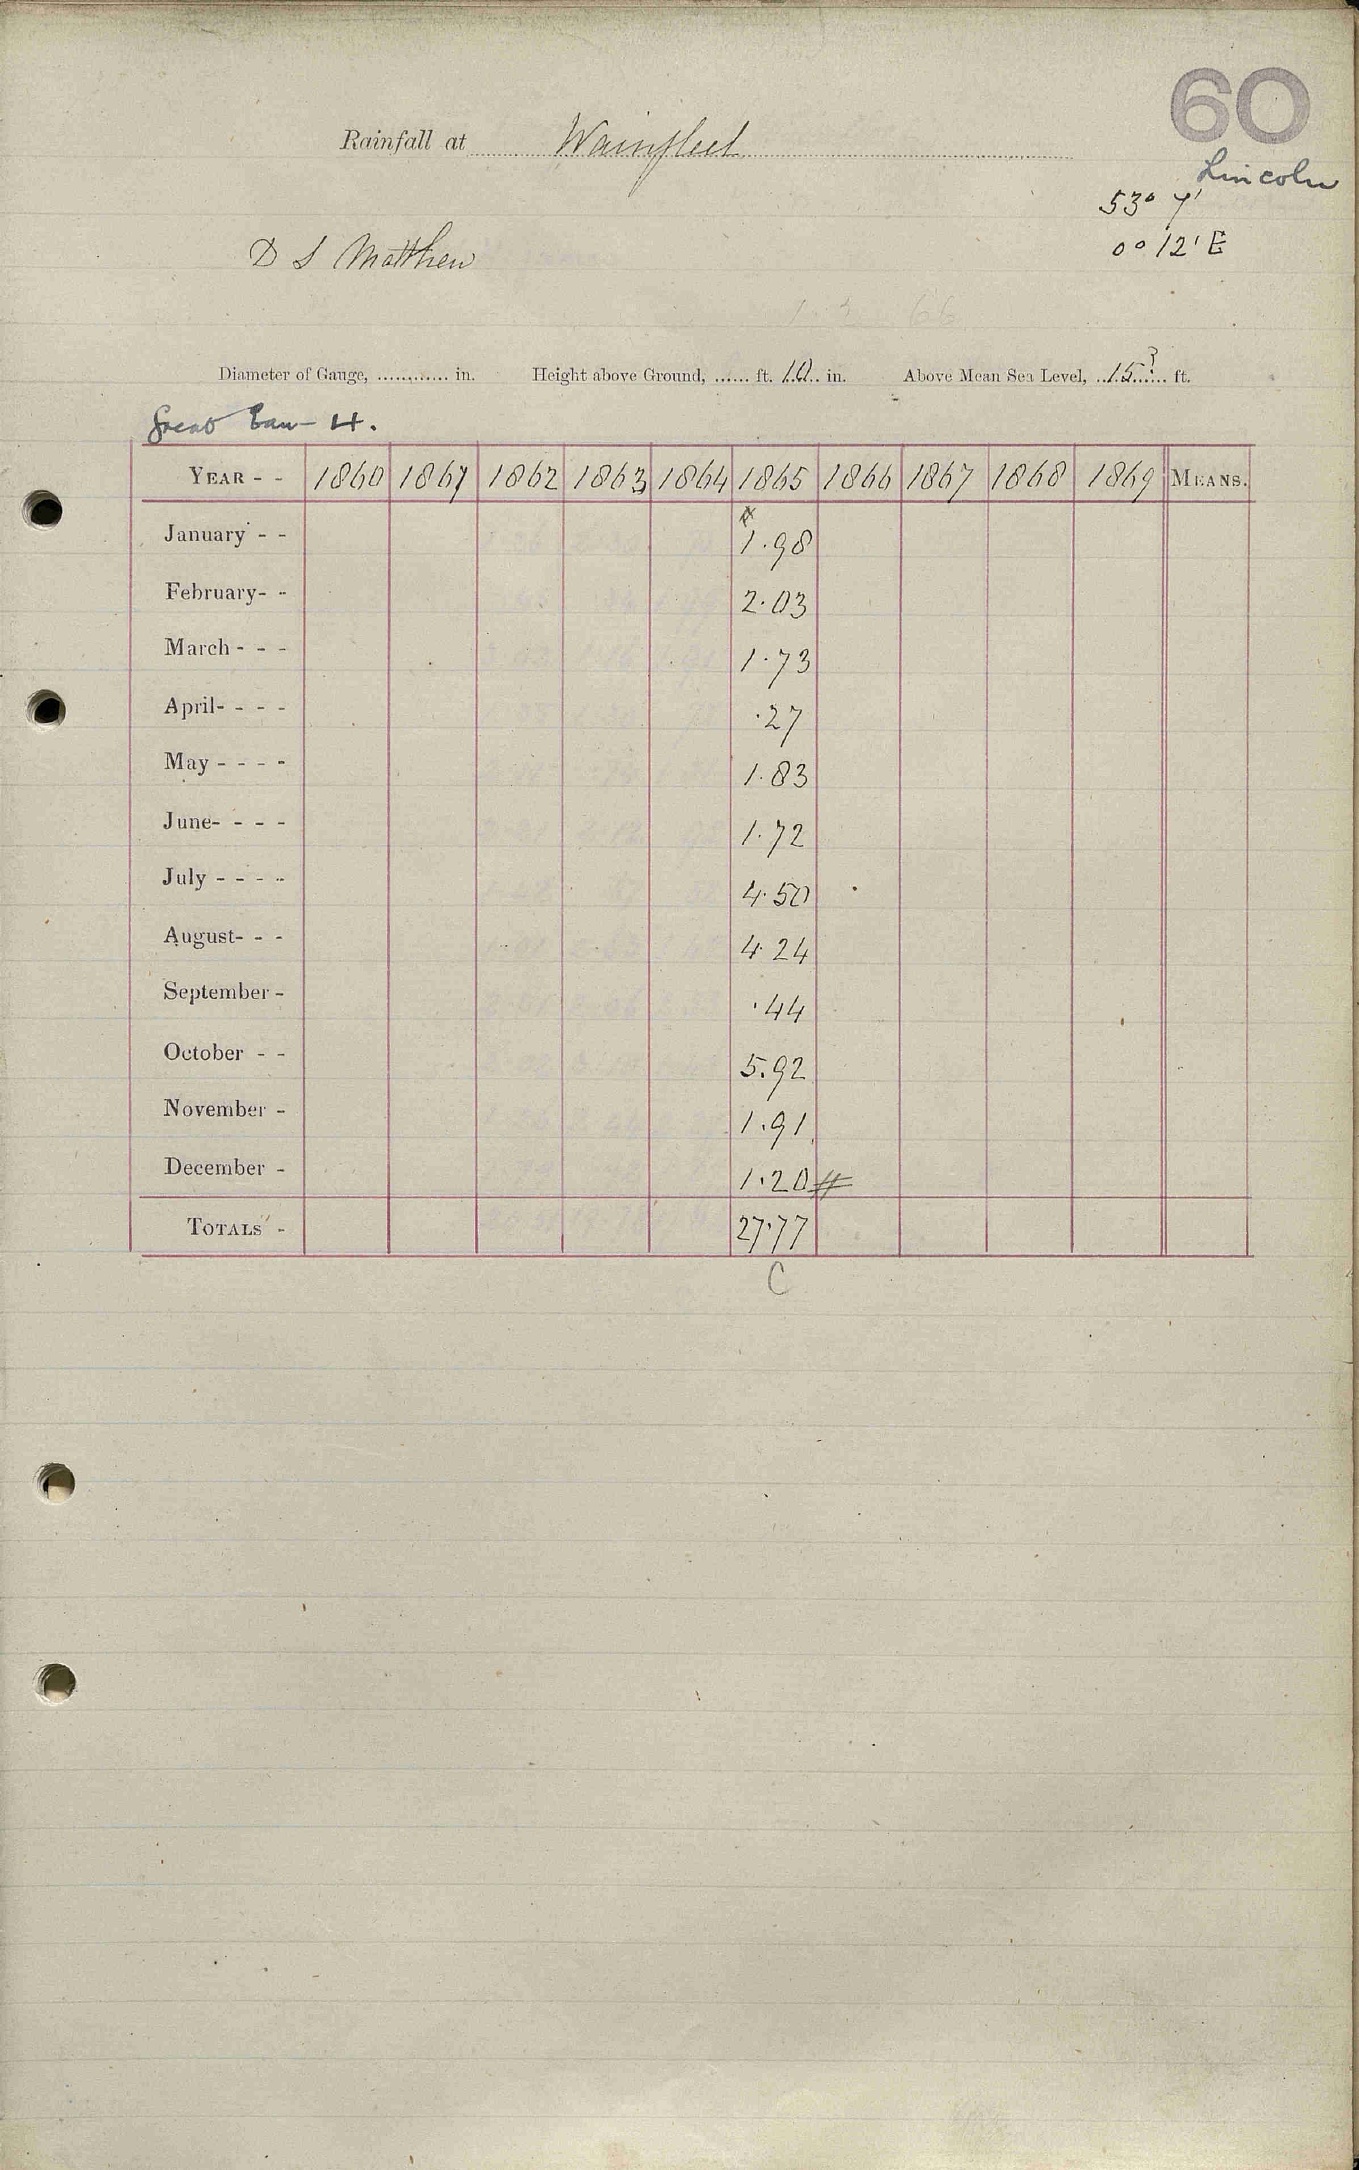 60
Rainfall at Wainfleet
Lincoln
53° 7'
0° 12' E
D S Matthew
Diameter of Gauge, ............ in. Height above Ground, ...... ft. 10 in. Above Mean Sea Level, 15 ? ft.
Great Eau - H.
YEAR - - 1860 1861 1862 1863 1864 1865 1866 1867 1868 1869 MEANS.
January - - 1.98
February- - 2.03
March - - - 1.73
April- - - - .27
May - - - - 1.83
June- - - - 1.72
July - - - - 4.50
August- - - 4.24
September - .44
October - - 5.92
November - 1.91
December - 1.20 #
TOTALS - 27.77
C